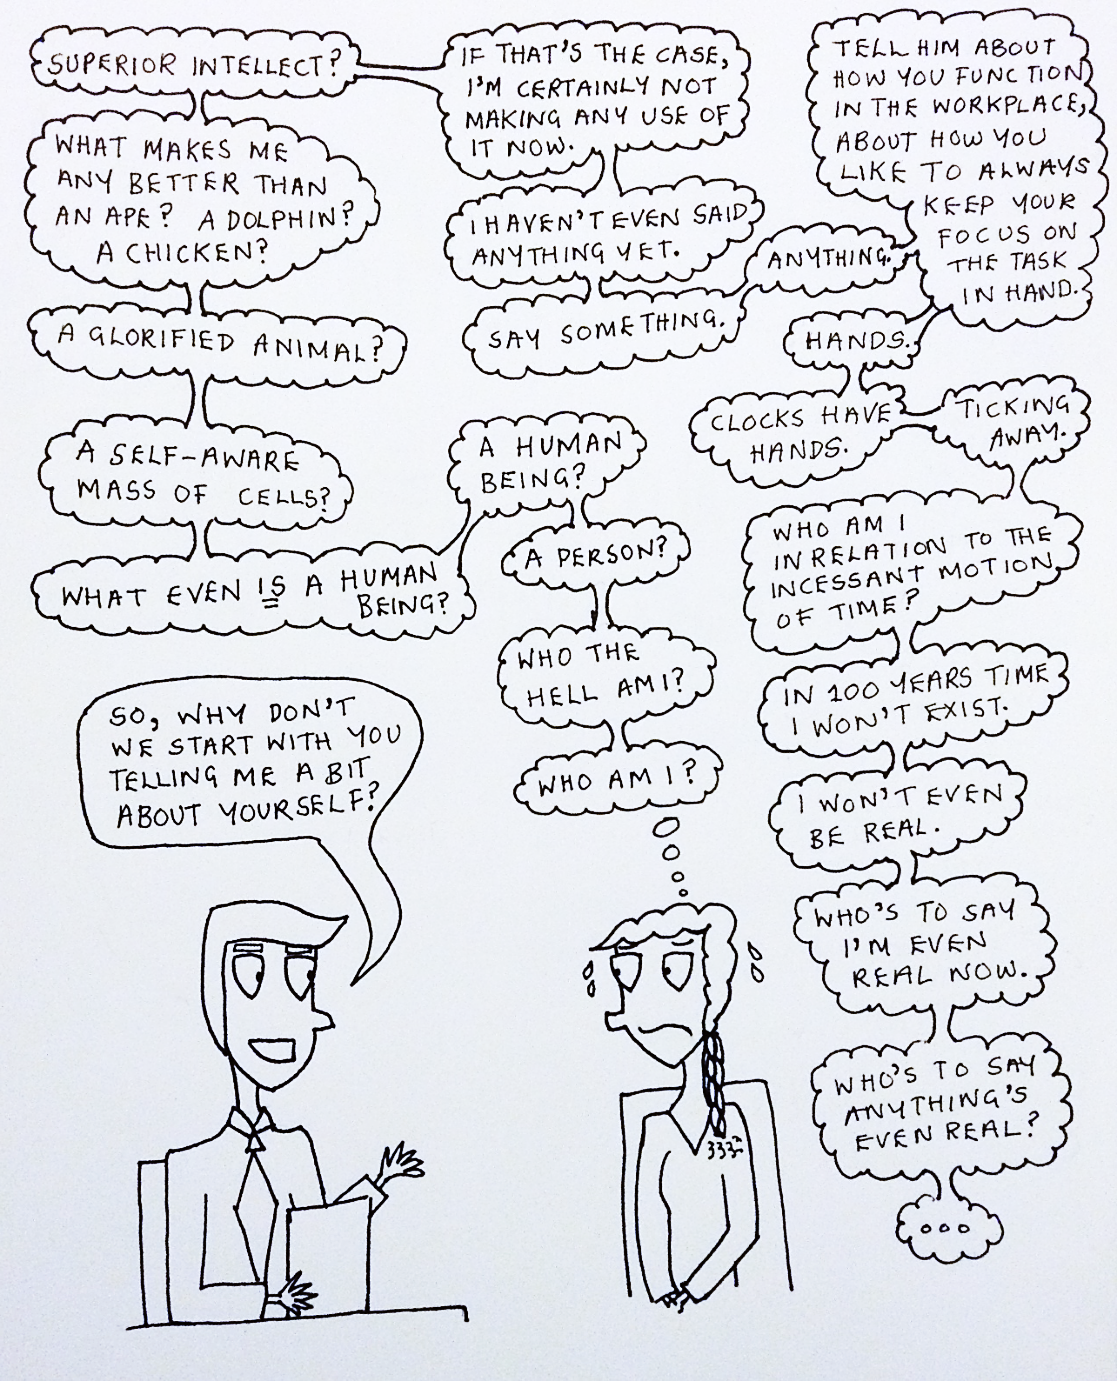 SO, WHY DON'T
WE START WITH YOU
TELLING ME A BIT
ABOUT YOURSELF?
WHO AM I?
WHO THE
HELL AM I?
A PERSON?
A HUMAN
BEING?
WHAT EVEN IS A HUMAN
BEING?
A SELF-AWARE
MASS OF CELLS?
A GLORIFIED ANIMAL?
WHAT MAKES ME
ANY BETTER THAN
AN APE? A DOLPHIN?
A CHICKEN?
SUPERIOR INTELLECT?
IF THAT'S THE CASE,
I'M CERTAINLY NOT
MAKING ANY USE OF
IT NOW.
I HAVEN'T EVEN SAID
ANYTHING YET.
SAY SOMETHING.
ANYTHING.
TELL HIM ABOUT
HOW YOU FUNCTION
IN THE WORKPLACE,
ABOUT HOW YOU
LIKE TO ALWAYS
KEEP YOUR
FOCUS ON
THE TASK
IN HAND.
HANDS.
CLOCKS HAVE
HANDS.
TICKING
AWAY.
WHO AM I
IN RELATION TO THE
INCESSANT MOTION
OF TIME?
IN 100 YEARS TIME
I WON'T EXIST.
I WON'T EVEN
BE REAL.
WHO'S TO SAY
I'M EVEN
REAL NOW.
WHO'S TO SAY
ANYTHING'S
EVEN REAL?
...